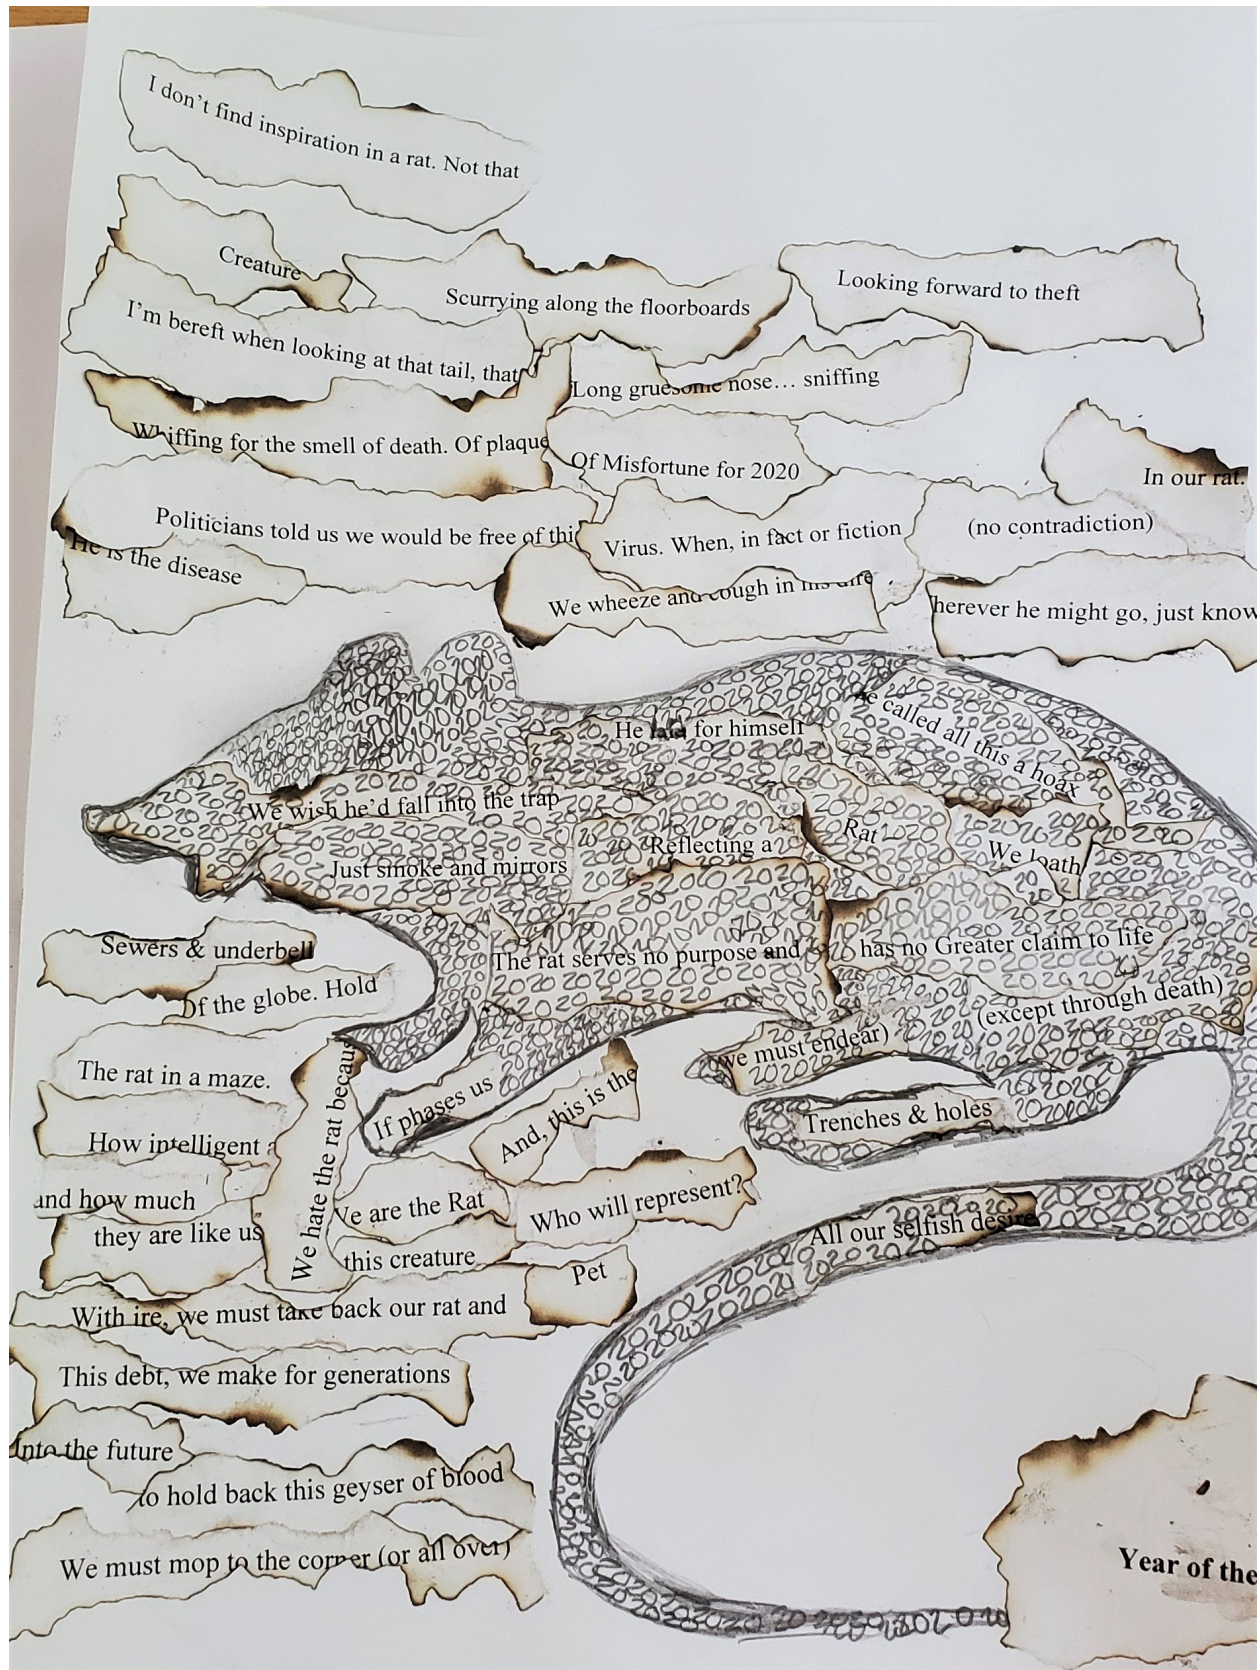 I don't find inspiration in a rat. Not that
Creature
Scurrying along the floorboards
Looking forward to theft
I'm bereft when looking at that tail, that
Long gruesome nose... sniffing
Whiffing for the smell of death. Of plaque
Of Misfortune for 2020
In our rat.
Politicians told us we would be free of thi
Virus. When, in fact or fiction
(no contradiction)
He is the disease
We wheeze and cough in his dire
herever he might go, just know
He for himself
he called all this a hoax
We wish he'd fall into the trap
Just smoke and mirrors
Reflecting a
Rat
We loath
The rat serves no purpose and
has no Greater claim to life
(except through death)
Sewers & underbell
Of the globe. Hold
(we must endear)
Trenches & holes
The rat in a maze.
How intelligent a
and how much
they are like us
We hate the rat becaus
If phases us
And, this is the
Ve are the Rat
Who will represent?
this creature
Pet
All our selfish desire
With ire, we must take back our rat and
This debt, we make for generations
Into the future
to hold back this geyser of blood
We must mop to the corner (or all over)
Year of the